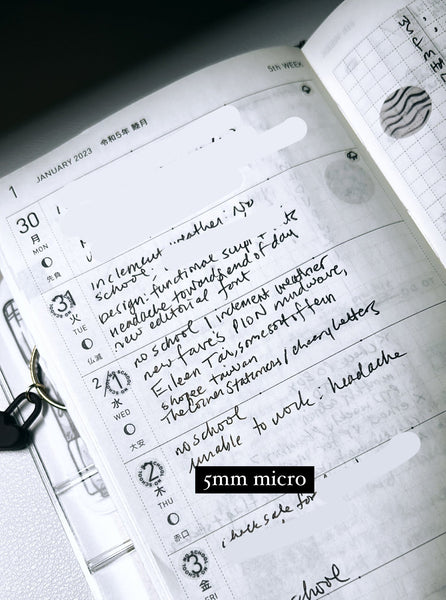 5th WEEK
1 JANUARY 2023 令和5年 睦月
30
月
MON
先負
inclement weather: No
school.
31
火
TUE
仏滅
Design: functional
headache towards end of day
new editorial font
2
1
水
WED
大安
no school / inclement weather
new faves PION mudwave,
Eileen Tai, some sort of fern
shopee taiwan
The Corner Stationers / cheery letters
2
木
THU
赤口
no school
unable to work: headache
5mm micro
check sale for
3
金
FRI
school